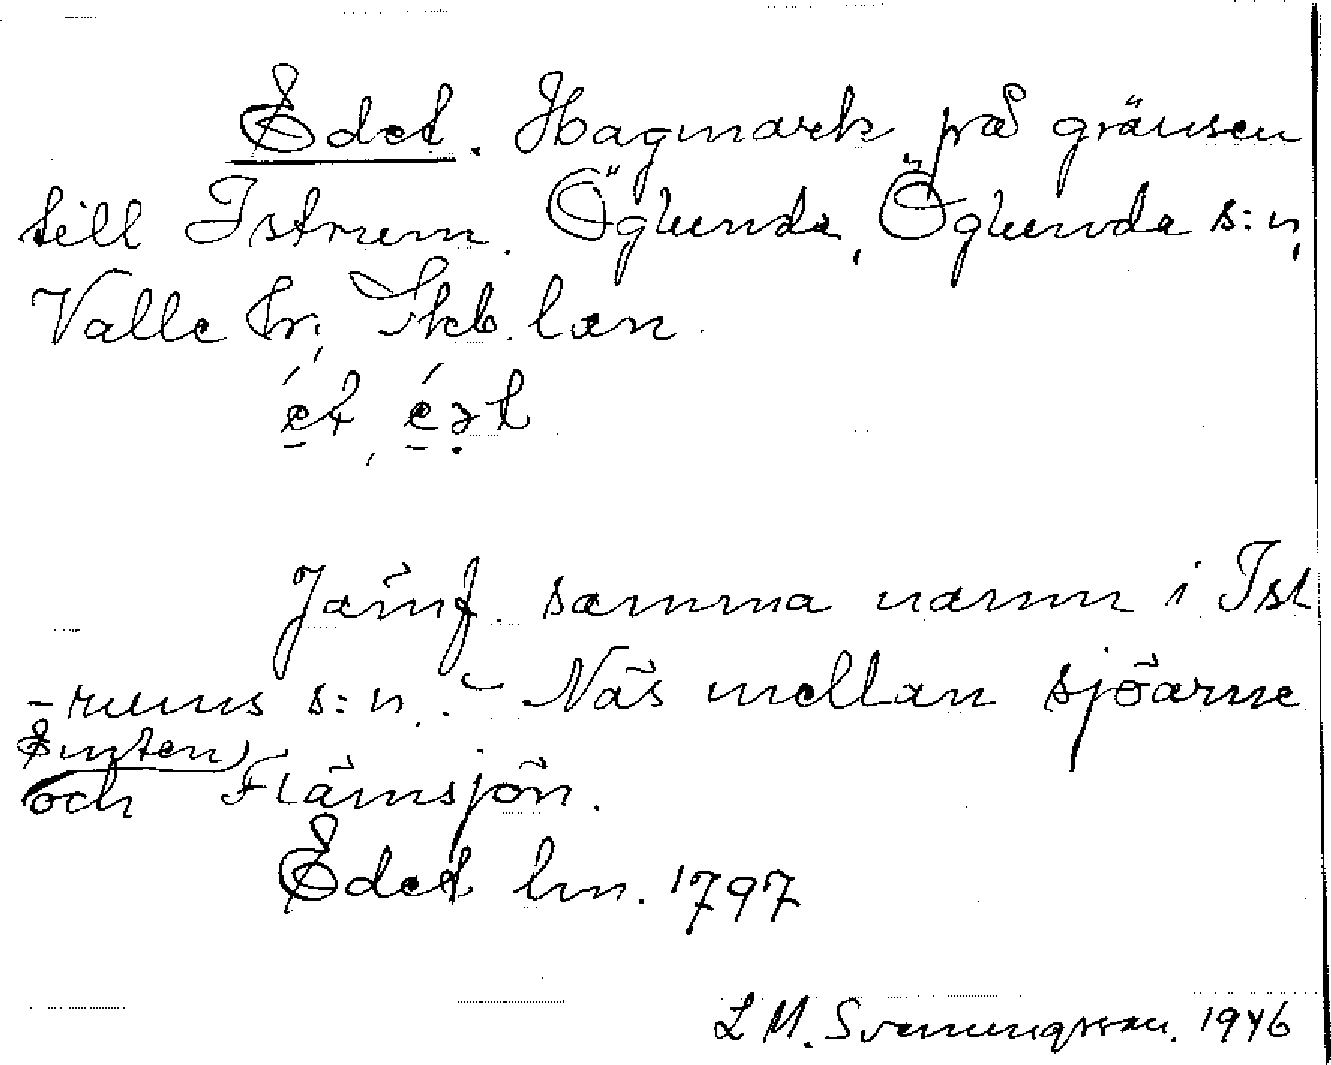 Edet. Hagmark på gränsen
till Istrum. Öglunda, Öglunda s:n,
Valle hr, Skb. län.
ét, éət
Jämf. samma namn i Ist
-rums s:n. - Näs mellan sjöarne
Emten
och Flämsjön.
Edet lm. 1797
L M. Svenungsson. 1946